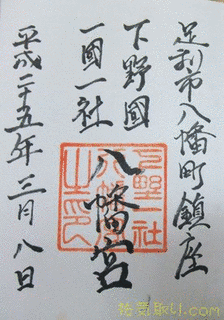 足利市八幡町鎮座
下野國
一國一社
八幡宮
平成二十五年三月八日
佐賀取り.com